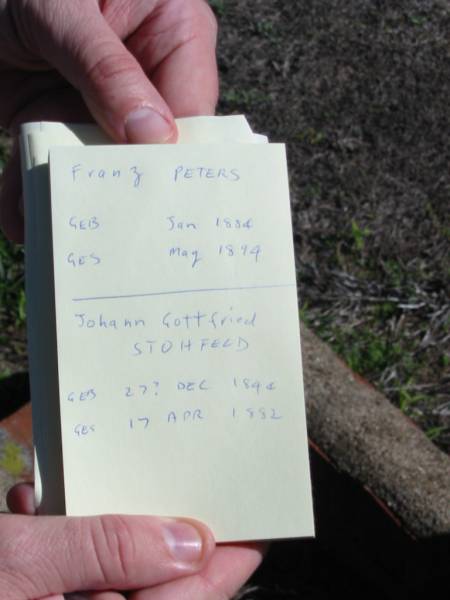 Franz PETERS
GEB Jan 1884
GES May 1894
Johann Gottfried
STOHFELD
GEB 27? DEC 1844
GES 17 APR 1882